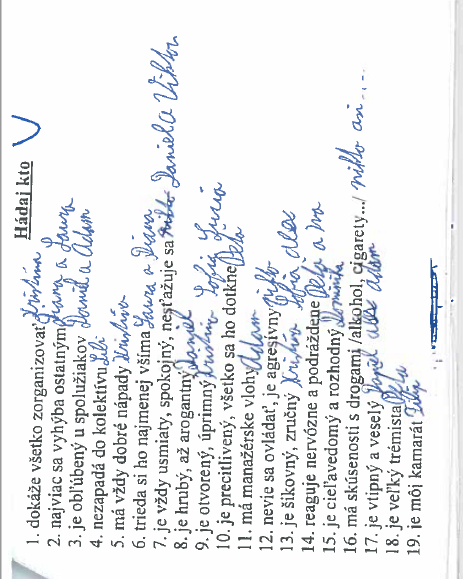 Hádaj kto
1. dokáže všetko zorganizovať Kristína
2. najviac sa vyhýba ostatným a Laura
3. je obľúbený u spolužiakov Daniel a Adam
4. nezapadá do kolektívu Lili
5. má vždy dobré nápady Kristína
6. trieda si ho najmenej všíma Laura a Diana
7. je vždy usmiaty, spokojný, nesťažuje sa Daniel a Viktor
8. je hrubý, až arogantný Daniel
9. je otvorený, úprimný Kristína Sofia Lucia
10. je precitlivený, všetko sa ho dotkne Peťa
11. má manažérske vlohy Adam
12. nevie sa ovládať, je agresívny nikto
13. je šikovný, zručný Kristína Sofia alex
14. reaguje nervózne a podráždene Peťa a
15. je cieľavedomý a rozhodný Dominika
16. má skúsenosti s drogami /alkohol, cigarety.../ nikto asi....
17. je vtipný a veselý Daniel alex Adam
18. je veľký trémista Peťa
19. je môj kamarát